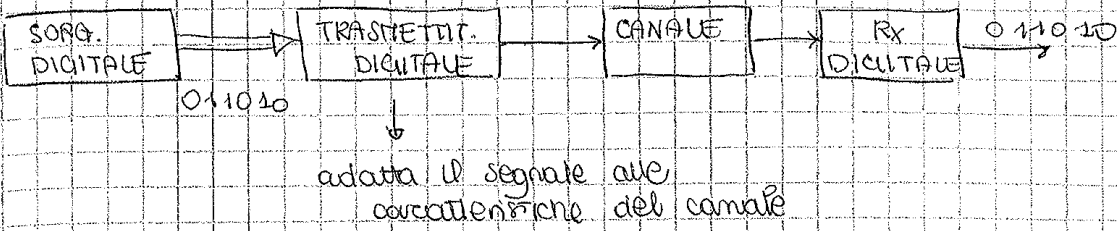 SORG.
DIGITALE
011010
TRASMETTIT.
DIGITALE
CANALE
RX
DIGITALE
011010
adatta il segnale alle
caratteristiche del canale